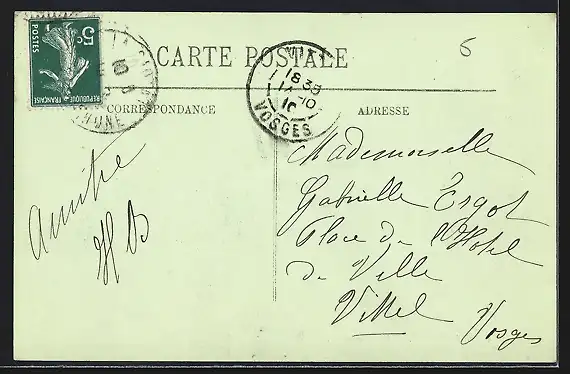 5c
POSTES
REPUBLIQUE FRANÇAISE
6
CARTE POSTALE
18 35
14 -10
10
VOSGES
CORRESPONDANCE
ADRESSE
Amitié
HB
Mademoiselle
Gabrielle Ergot
Place de l'Hotel
de Ville
Vittel
Vosges